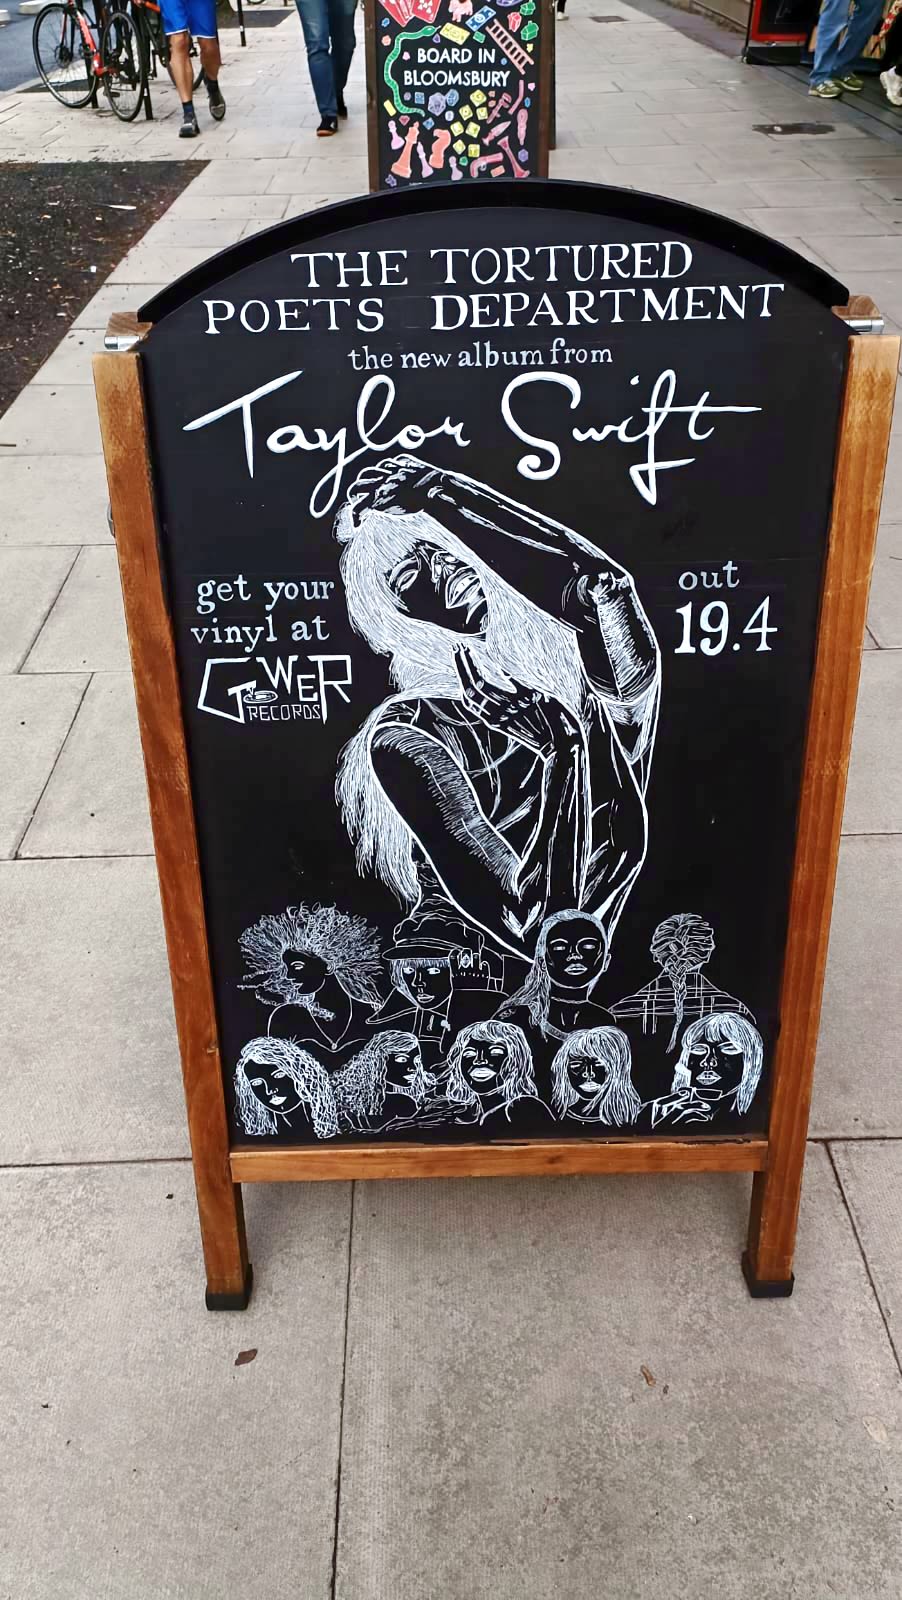 BOARD IN
BLOOMSBURY
THE TORTURED
POETS DEPARTMENT
the new album from
Taylor Swift
get your
vinyl at
GOWER
RECORDS
out
19.4